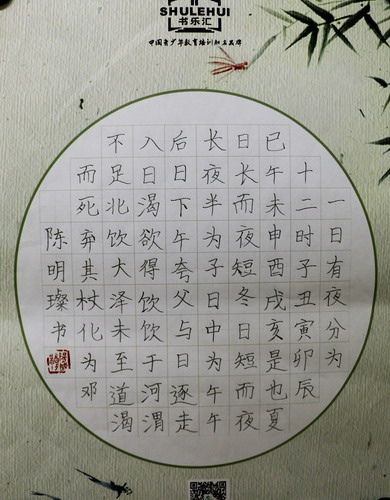 SHULEHUI
书乐汇
中国青少年教育培训知名品牌
一日有夜分为
十二时子丑寅卯辰
已午未申酉戌亥是也夏
日长而夜短冬日短而夜
长夜半为子日中为午午
后日下午夸父与日逐走
入日渴欲得饮饮于河渭
不足北饮大泽未至道渴
而死弃其杖化为邓
陈明璨书